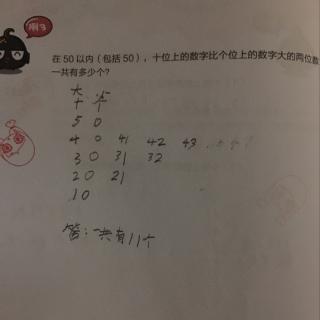 例3
在50以内（包括50），十位上的数字比个位上的数字大的两位数
一共有多少个？
大 小
十 个
5 0
4 0 41 42 43
3 0 31 32
20 21
10
答：一共有11个